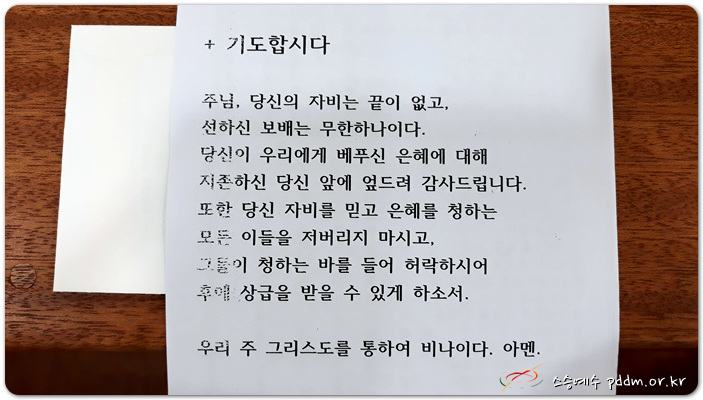 + 기도합시다
주님, 당신의 자비는 끝이 없고,
선하신 보배는 무한하나이다.
당신이 우리에게 베푸신 은혜에 대해
지존하신 당신 앞에 엎드려 감사드립니다.
또한 당신 자비를 믿고 은혜를 청하는
모든 이들을 저버리지 마시고,
그들이 청하는 바를 들어 허락하시어
후에 상급을 받을 수 있게 하소서.
우리 주 그리스도를 통하여 비나이다. 아멘.
스승예수 pddm.or.kr